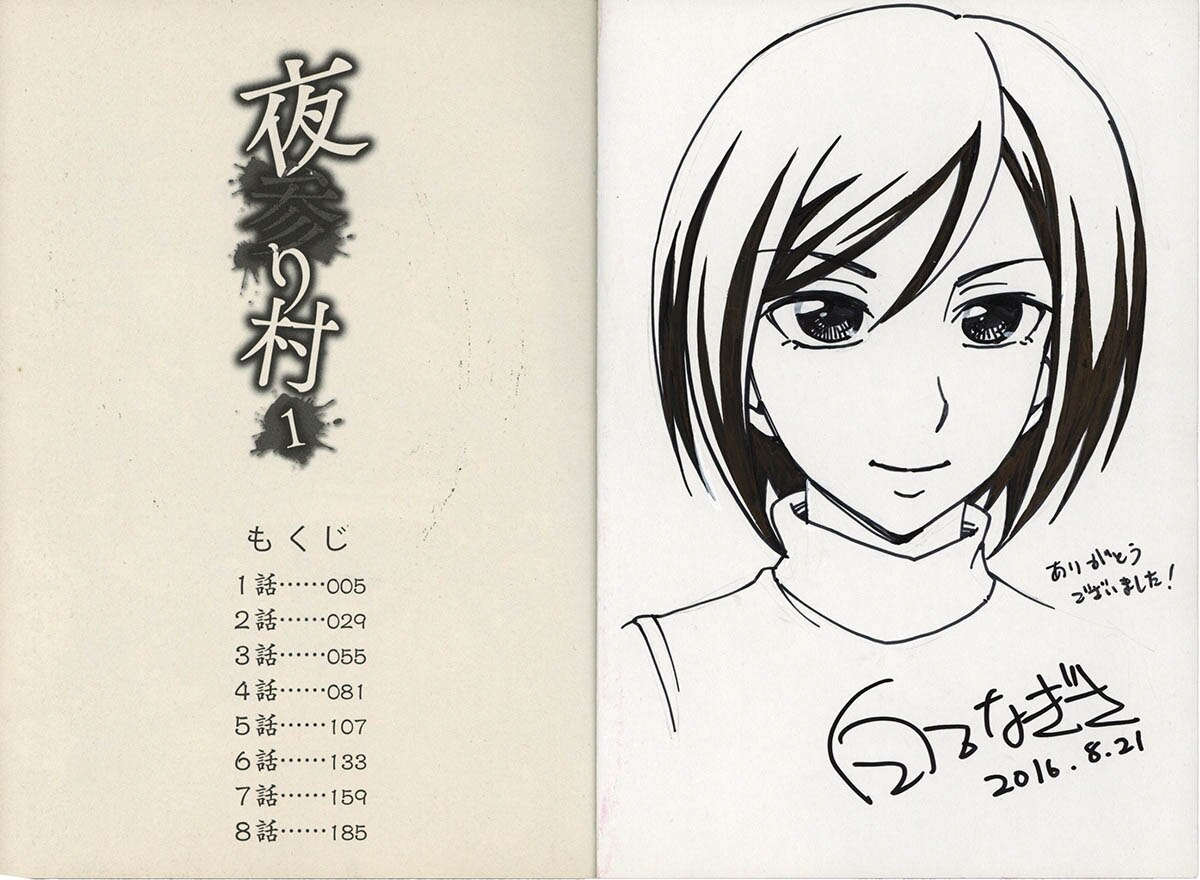 夜参り村
1
もくじ
1話……005
2話……029
3話……055
4話……081
5話……107
6話……133
7話……159
8話……185
ありがとう
ございました!
なぎさ
2016.8.21